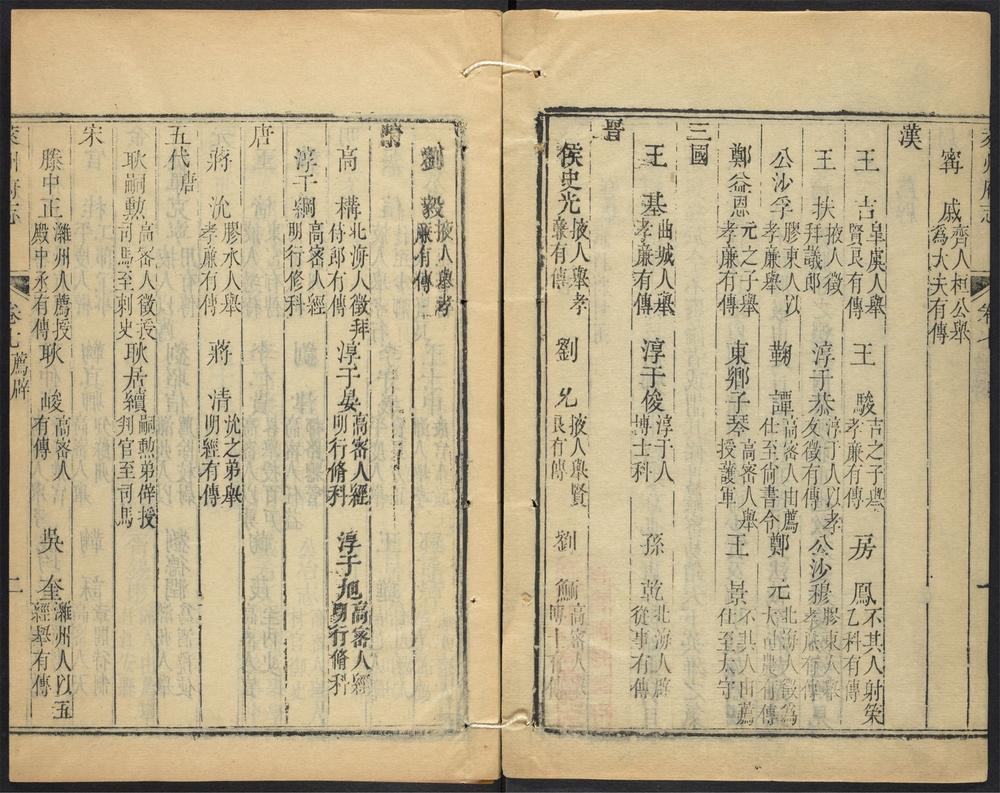 甯戚 齊人桓公舉爲大夫有傳
漢
王吉 皐虞人舉賢良有傳 王駿 吉之子舉孝廉有傳 房鳳 不其人射策乙科有傳
王扶 掖人徵拜議郎 淳于恭 淳于人以孝友徵有傳 公沙穆 膠東人舉孝廉有傳
公沙孚 膠東人以孝廉舉 鞠譚 高密人由薦仕至尙書令 鄭元 北海人徵爲大司農有傳
鄭益恩 元之子舉孝廉有傳 東鄉子琴 高密人舉授護軍 王景 不其人由薦仕至太守
三國
王基 曲城人舉孝廉有傳 淳于俊 淳于人博士科 孫乾 北海人辟從事有傳
晉
侯史光 掖人舉孝廉有傳 劉 掖人舉賢良有傳 劉 高密人
劉毅 掖人舉孝廉有傳
高構 北海人徵拜侍郎有傳 淳于晏 高密人經明行脩科 淳于旭 高密人經明行脩科
淳于綱 高密人經明行修科
唐
蔣沇 膠水人舉孝廉有傳 蔣清 沇之弟舉明經有傳
五代唐
耿嗣勲 高密人徵授司馬至刺史 耿居續 嗣勲弟薦授判官至司馬
宋
滕中正 濰州人薦授殿中丞有傳 耿峻 高密人有傳 吳奎 濰州人以五經舉有傳
萊州府志 卷七 薦辟 二